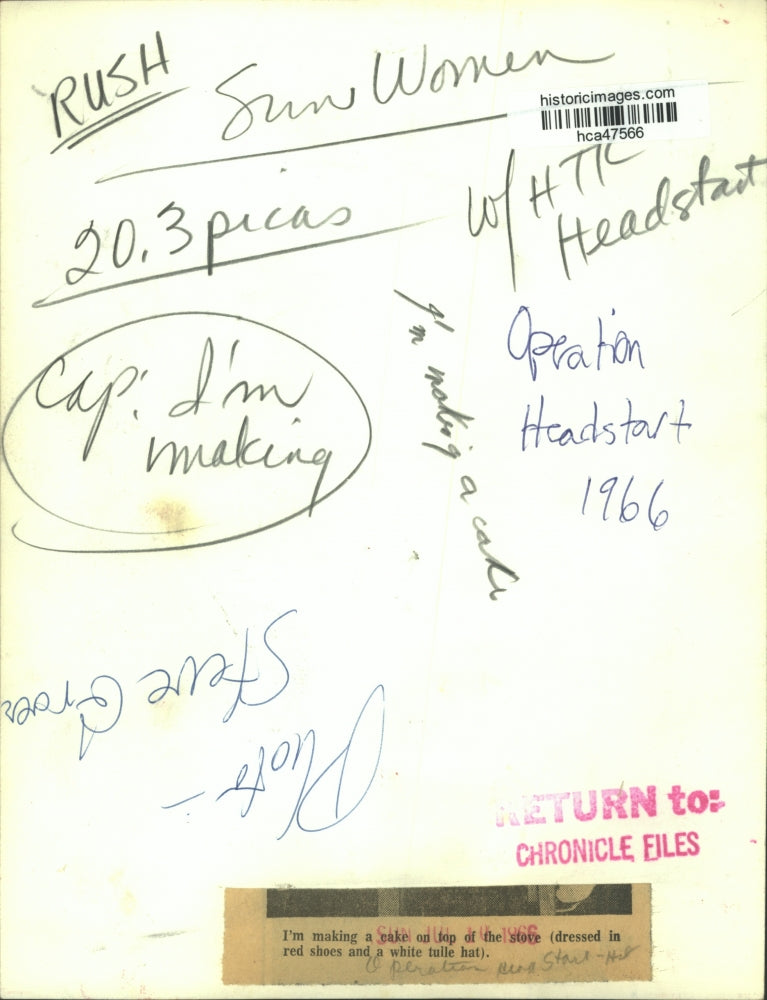 RUSH
Sun Women
historicimages.com
hca47566
20.3 picas
W/ HTK
Headstart
Cap: I'm
making
I'm making a cake
Operation
Headstart
1966
Photo -
Steve
RETURN to:
CHRONICLE FILES
SUN JUL 1966
I'm making a cake on top of the stove (dressed in
red shoes and a white tulle hat).
Operation Head Start